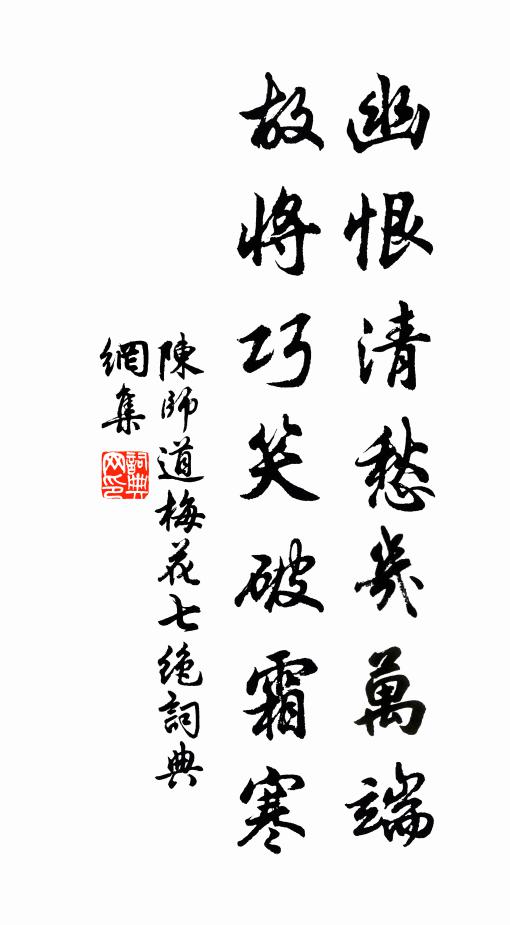 幽恨清愁幾萬端
故將巧笑破霜寒
陳師道梅花七絶詞典
網集
詞典
网印